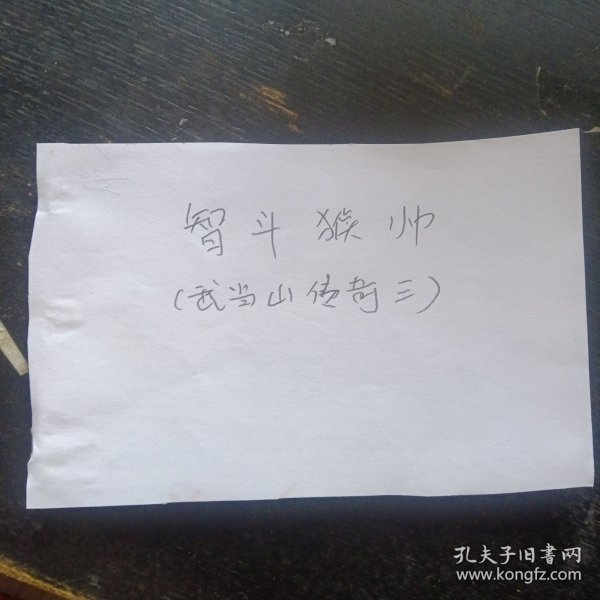 智斗猴帅
(武当山传奇三)
孔夫子旧書网
www.kongfz.com